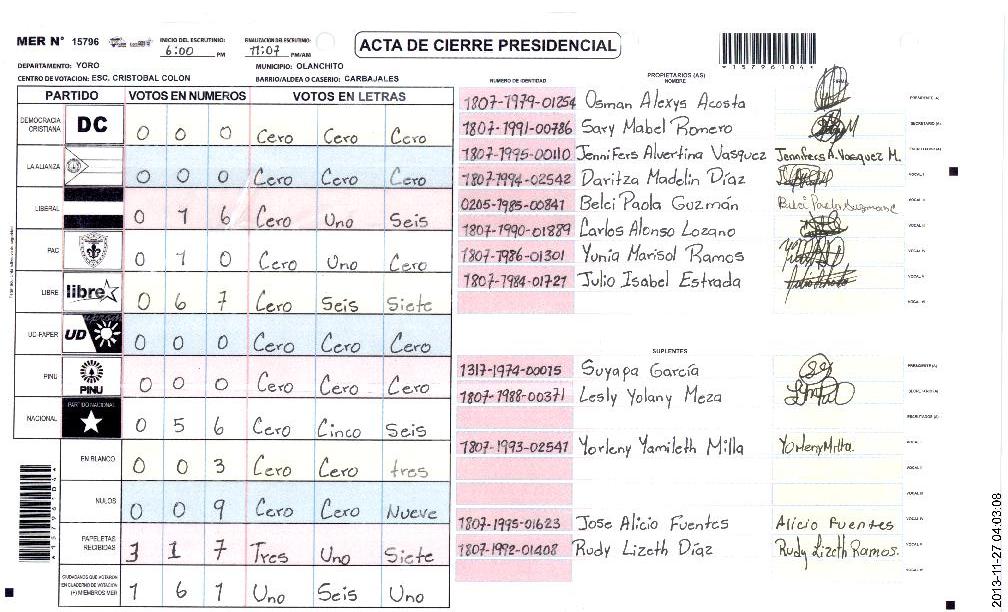 MER N° 15796
INICIO DEL ESCRUTINIO: 6:00 PM
FINALIZACIÓN DEL ESCRUTINIO: 11:07 PM/AM
ACTA DE CIERRE PRESIDENCIAL
*15796104*
DEPARTAMENTO: YORO
MUNICIPIO: OLANCHITO
CENTRO DE VOTACION: ESC. CRISTOBAL COLON
BARRIO/ALDEA O CASERIO: CARBAJALES
PARTIDO VOTOS EN NUMEROS VOTOS EN LETRAS
DEMOCRACIA CRISTIANA DC 0 0 0 Cero Cero Cero
LA ALIANZA 0 0 0 Cero Cero Cero
LIBERAL 0 1 6 Cero Uno Seis
PAC 0 1 0 Cero Uno Cero
LIBRE libre 0 6 7 Cero Seis Siete
UD-FAPER UD 0 0 0 Cero Cero Cero
PINU PINU 0 0 0 Cero Cero Cero
NACIONAL PARTIDO NACIONAL 0 5 6 Cero Cinco Seis
EN BLANCO 0 0 3 Cero Cero tres
NULOS 0 0 9 Cero Cero Nueve
PAPELETAS RECIBIDAS 3 1 7 Tres Uno Siete
CIUDADANOS QUE VOTARON EN CUADERNO DE VOTACION (+) MIEMBROS MER 1 6 1 Uno Seis Uno
NUMERO DE IDENTIDAD
PROPIETARIOS (AS)
NOMBRE
1807-1979-01254 Osman Alexys Acosta PRESIDENTE (A)
1807-1991-00786 Sary Mabel Romero SECRETARIO (A)
1807-1995-00110 Jennifers Alvertina Vasquez Jennifers A. Vasquez M.
1807-1994-02542 Daritza Madelin Díaz VOCAL I
0205-1985-00841 Belci Paola Guzmán Belci Paola Guzman VOCAL II
1807-1990-01889 Carlos Alonso Lozano VOCAL III
1807-1986-01301 Yunia Marisol Ramos VOCAL IV
1807-1984-01727 Julio Isabel Estrada VOCAL V
VOCAL VI
SUPLENTES
1317-1974-00075 Suyapa García PRESIDENTE (A)
1807-1988-00371 Lesly Yolany Meza SECRETARIO (A)
ESCRUTADOR (A)
1807-1993-02547 Yorleny Yamileth Milla Yorleny Milla. VOCAL I
VOCAL II
VOCAL III
1807-1995-01623 Jose Alicio Fuentes Alicio Fuentes VOCAL IV
1807-1992-01408 Rudy Lizeth Díaz Rudy Lizeth Ramos. VOCAL V
VOCAL VI
*15796104*
2013-11-27 04:03:08